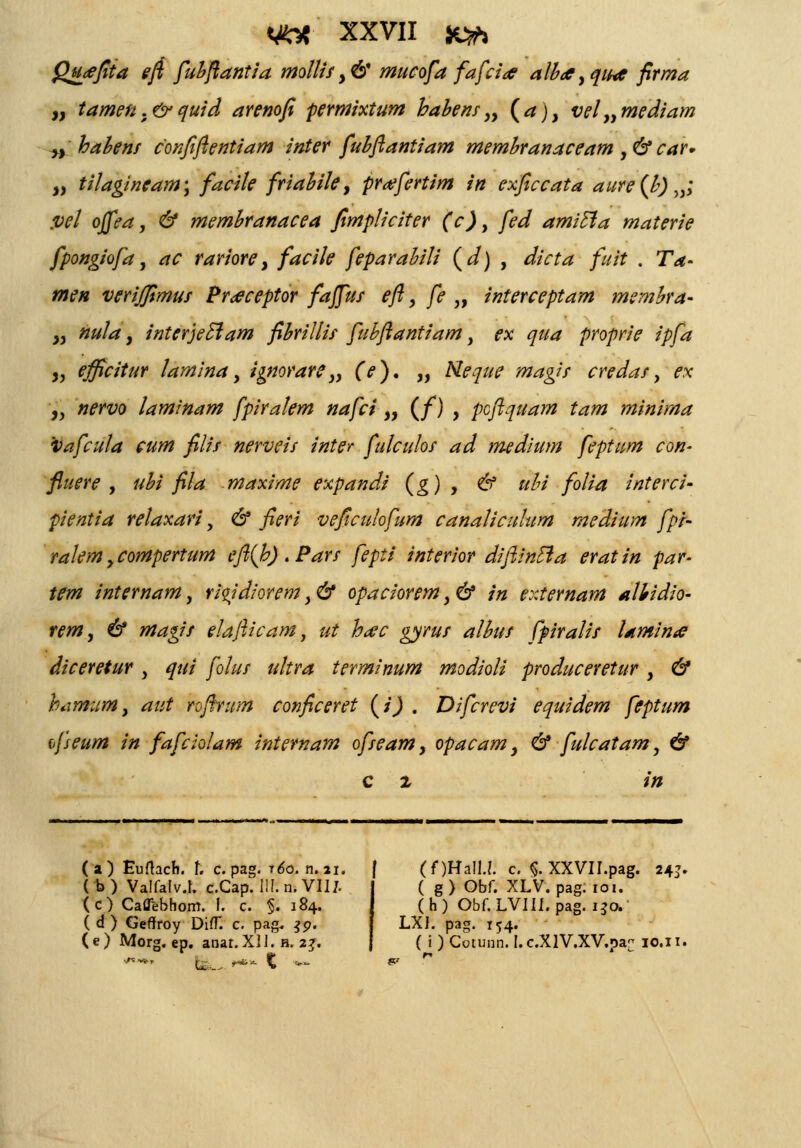 XXVII
Quæſita eſt ſubſtantia mollis, & mucoſa faſciæ albæ, quæ firma
„ tamen, & quid arenoſi permixtum habens„ (a), vel„ mediam
„ habens conſiſtentiam inter ſubſtantiam membranaceam, & car-
„ tilagineam; facile friabile, præſertim in exſiccata aure (b)„;
vel oſſea, & membranacea ſimpliciter (c), ſed amicta materie
ſpongioſa, ac rariore, facile ſeparabili (d), dicta fuit. Ta-
men veriſſimus Præceptor faſſus eſt, ſe „ interceptam membra-
„ nula, interjectam fibrillis ſubſtantiam, ex qua proprie ipſa
„ efficitur lamina, ignorare„ (e). „ Neque magis credas, ex
„ nervo laminam ſpiralem naſci„ (f), poſtquam tam minima
vaſcula cum filis nerveis inter ſulculos ad medium ſeptum con-
fluere, ubi fila maxime expandi (g), & ubi folia interci-
pientia relaxari, & fieri veſiculoſum canaliculum medium ſpi-
ralem, compertum eſt (h). Pars ſepti interior diſtincta erat in par-
tem internam, rigidiorem, & opaciorem, & in externam albidio-
rem, & magis elaſticam, ut hæc gyrus albus ſpiralis laminæ
diceretur, qui ſolus ultra terminum modioli produceretur, &
hamum, aut roſtrum conficeret (i). Diſcrevi equidem ſeptum
oſseum in faſciolam internam oſseam, opacam, & ſulcatam, &
c 2 in
(a) Euſtach. l. c. pag. 160. n. 21.
(b) Valſalv. l. c. Cap. III. n. VIII.
(c) Caſſebhom. l. c. §. 184.
(d) Geffroy Diſſ. c. pag. 39.
(e) Morg. ep. anat. XII. n. 23.
(f) Hall. l. c. §. XXVII. pag. 243.
(g) Obſ. XLV. pag. 101.
(h) Obſ. LVIII. pag. 130.
LXI. pag. 154.
(i) Cotunn. l. c. XIV. XV. pag 10. 11.